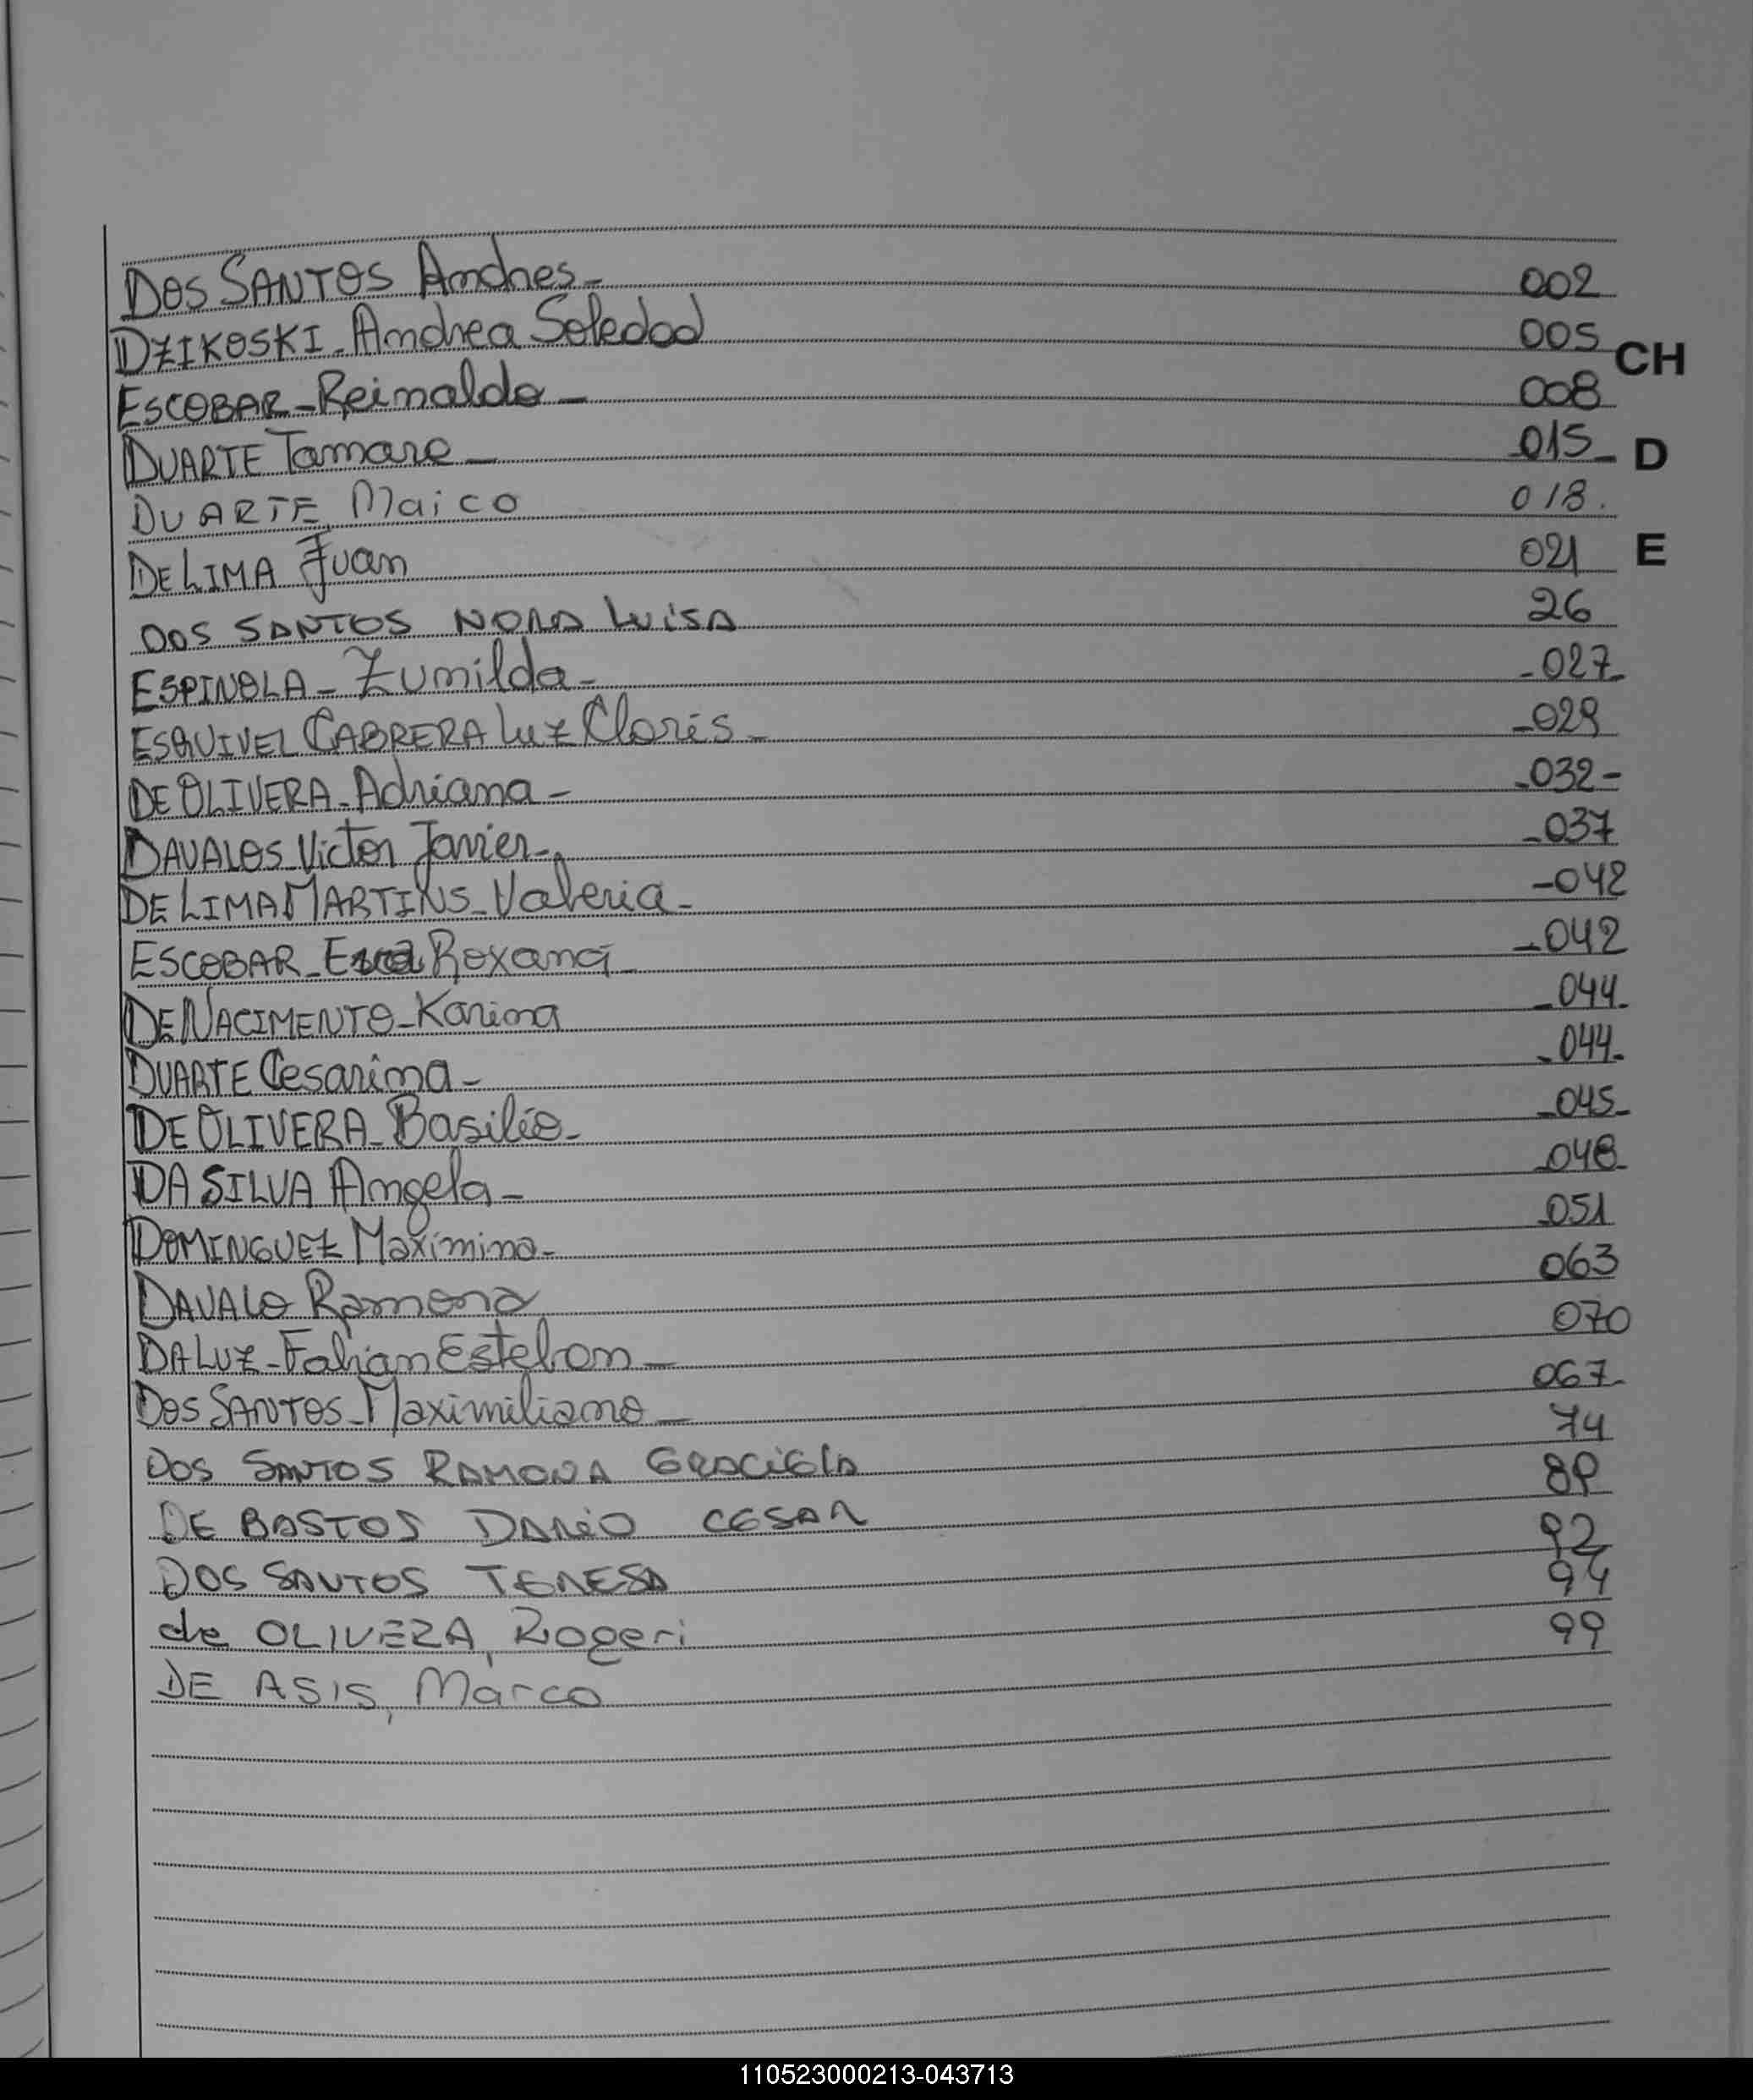 DOS SANTOS Andres- 002
DZIKOSKI - Andrea Soledad 005
CH
ESCOBAR - Reinaldo - 008
DUARTE Tamara - 015 -
D
DUARTE, Maico 018.
DE LIMA Juan 021
E
DOS SANTOS NORA LUISA 26
ESPINOLA - Zunilda - - 027 -
ESQUIVEL CABRERA Luz Cloris - - 029
DE OLIVERA - Adriana - - 032 -
DAVALOS Victor Javier - - 037
DE LIMA MARTINS - Valeria - - 042
ESCOBAR - Roxana - - 042
DE NACIMENTO - Karina - 044 -
DUARTE Cesarina - - 044 -
DE OLIVERA - Basilio - - 045 -
DA SILVA Angela - - 048 -
DOMINGUEZ Maximina - - 051
DAVALO Ramona 063
DA LUZ - Fabian Esteban - 070
DOS SANTOS - Maximiliano - 067 -
DOS SANTOS RAMONA GRACIELA 74
DE BASTOS DARIO CESAR 89
DOS SANTOS TERESA 92
de OLIVERA, Rogeri 94
DE ASIS, Marco 99
110523000213-043713